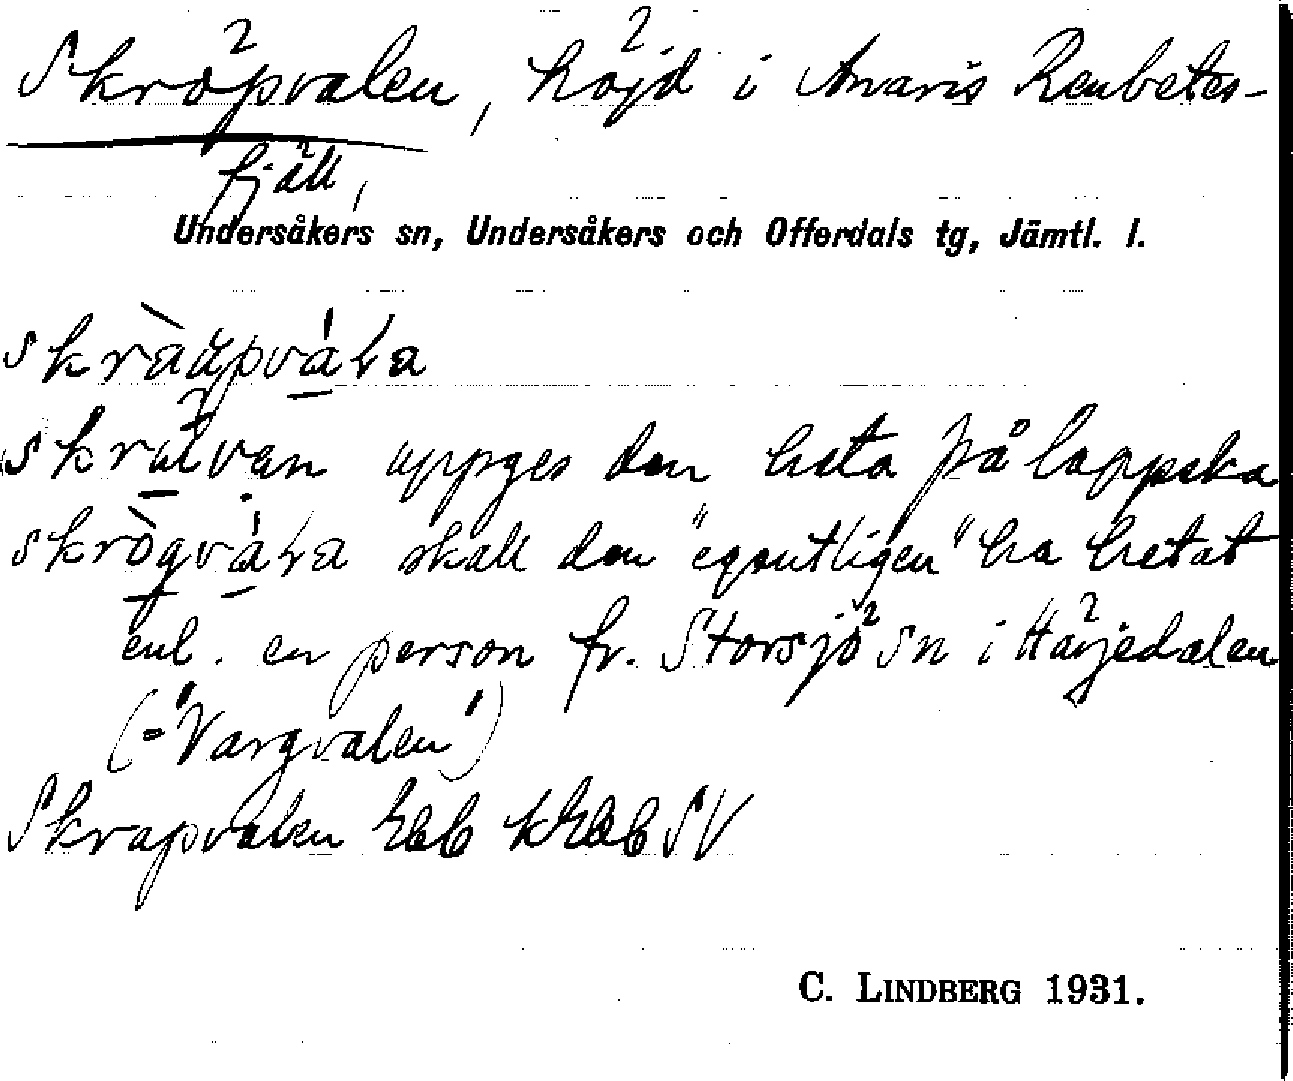 Skröpvalen, höjd i Anaris Renbetes-
fjäll,
Undersåkers sn, Undersåkers och Offerdals tg, Jämtl. l.
uppges den heta på lappska
skall den "egentligen" ha hetat
enl. en person fr. Storsjö sn i Härjedalen
(="Vargvalen")
Skrapvalen
C. LINDBERG 1931.